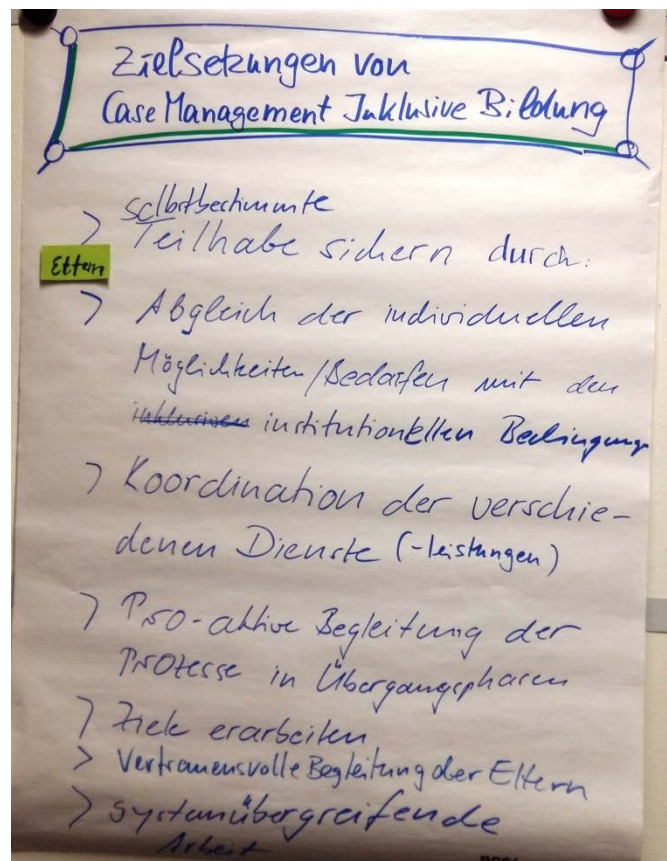 Zielsetzungen von
Case Management Inklusive Bildung
selbstbestimmte
> Teilhabe sichern durch:
Eltern
> Abgleich der individuellen
Möglichkeiten/Bedarfen mit den
inklusiven institutionellen Bedingunge
> Koordination der verschie-
denen Dienste (-leistungen)
> Pro-aktive Begleitung der
Prozesse in Übergangsphasen
> Ziele erarbeiten
> Vertrauensvolle Begleitung der Eltern
> systemübergreifende
Arbeit